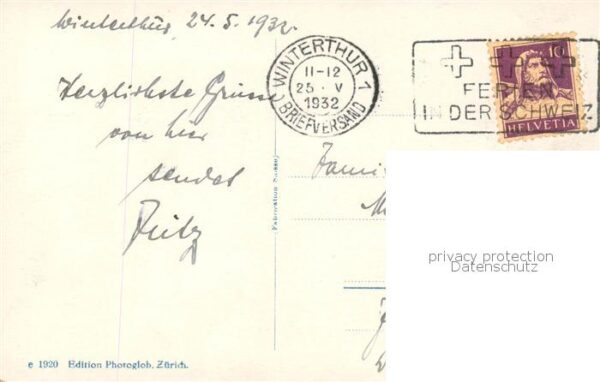 Winterthur, 24. 5. 1932.
Herzlichste Grüsse
von hier
sendet
Fritz
WINTERTHUR 1
11-12
25. V
1932
BRIEFVERSAND
FERIEN
IN DER SCHWEIZ
10
HELVETIA
Fabrication Suisse
privacy protection
Datenschutz
e 1920 Edition Photoglob, Zürich.